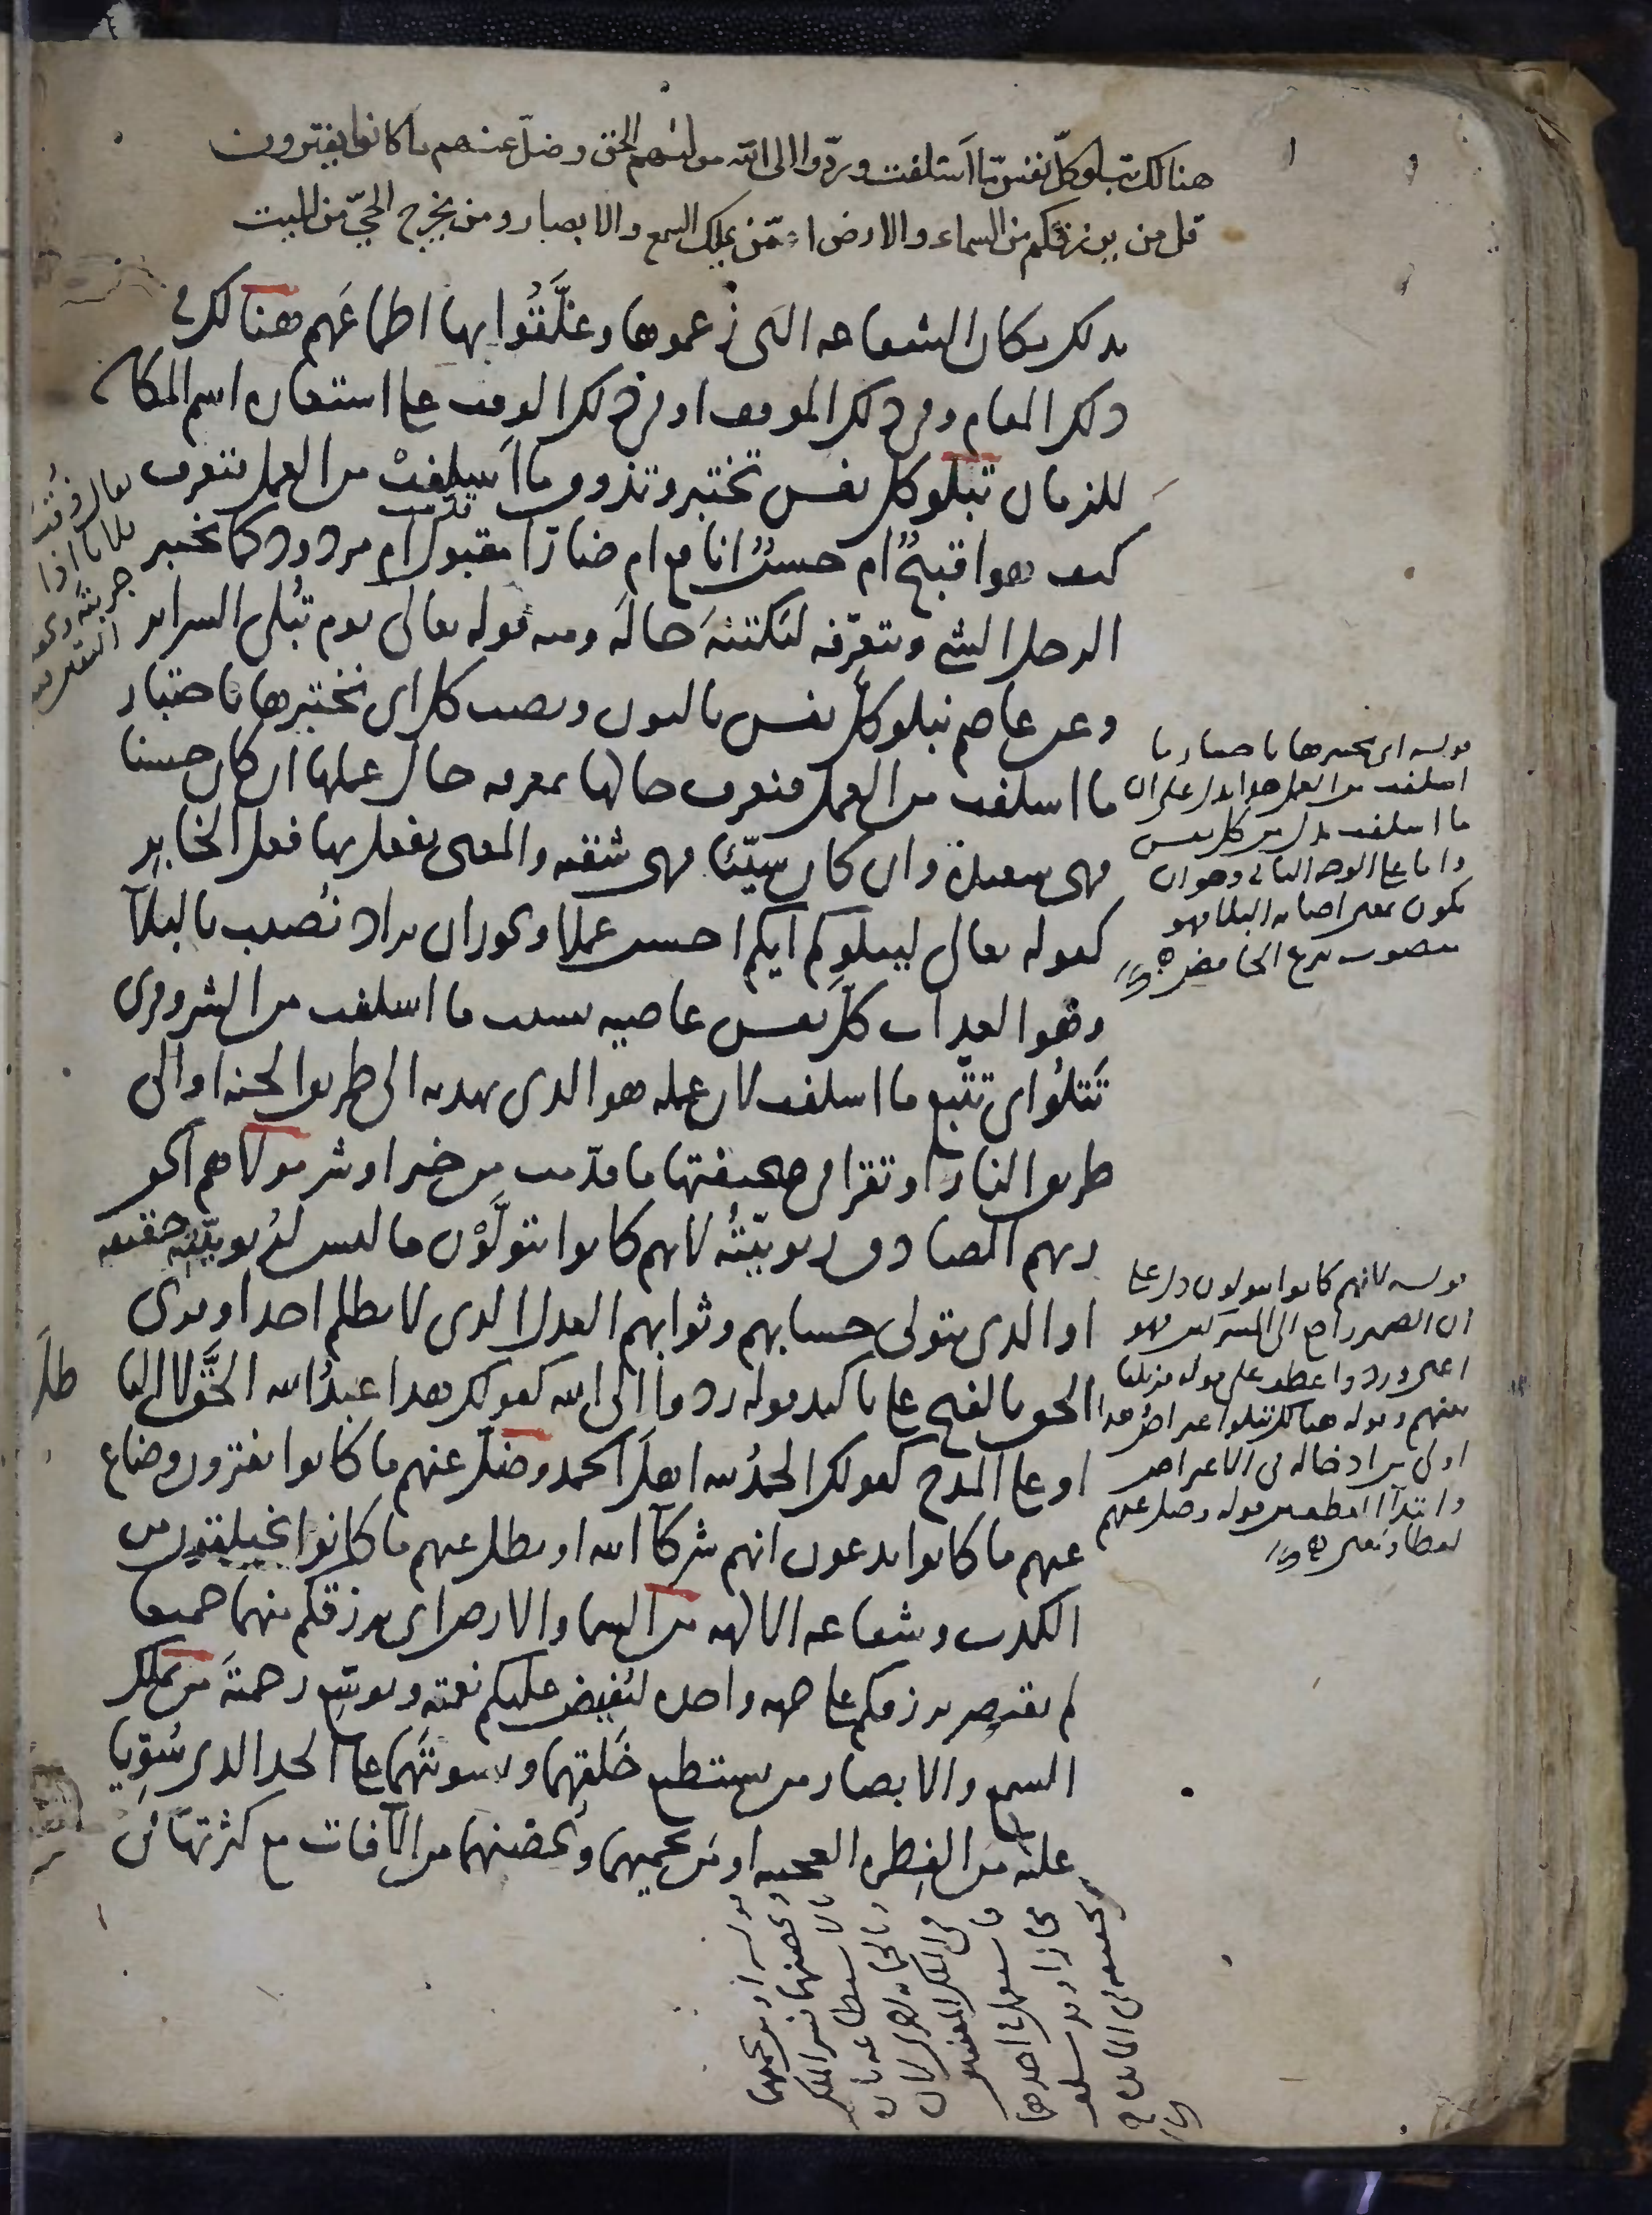 هنالك تبلو كلّ نفس ما اسلفت وردّوا الى الله موليهم الحق وضلّ عنهم ما كانوا يفترون
قل من يرزقكم من السماء والارض امّن يملك السمع والابصار ومن يخرج الحيّ من الميت
بذلك مكان الشفاعه التى زعموها وعلّقوا بها اطماعهم هنالك فى
ذلك المقام وفى ذلك الموقف او فى ذلك الوقت على استعاره اسم المكان
للزمان تبلو كل نفس تختبر وتذوق ما اسلفت من العمل فتعرف
كيف هو اقبيح ام حسن انافع ام ضار امقبول ام مردود كما يختبر
الرجل الشى ويتعرّفه ليكتنه حاله ومنه قوله تعالى يوم تبلى السراير
وعن عاصم نبلو كل نفس بالنون ونصب كل اى نختبرها باختبار
ما اسلفت من العمل فنعرف حالها بمعرفه حال عملها ان كان حسنا
فهى سعيدة وان كان سيّئا فهى شقيه والمعنى نفعل بها فعل الخابر
كقوله تعالى ليبلوكم ايكم احسن عملا ويجوز ان يراد نصيب بالبلآ
وهو العذاب كلّ نفس عاصيه بسبب ما اسلفت من الشر وقرى
تتلوا اى تتبع ما اسلفت لان عمله هو الذى يهديه الى طريق الجنه او الى
طريق النار او تقرا فى صحيفتها ما قدّمت من خير او شر مولاهم الحق
ربهم الصادق ربوبيّته لانهم كانوا يتولّون ما ليس لربوبيّته حقيقه
او الذى يتولى حسابهم وثوابهم العدل الذى لا يظلم احدا وقرى
الحق بالفتح على تاكيد قوله ردوا الى الله كقولك هذا عبد الله الحقّ لا الباطل
او على المدح كقولك الحمد لله اهلَ الحمد وضل عنهم ما كانوا يفترون وضاع
عنهم ما كانوا يدعون انهم شركآ الله او بطل عنهم ما كانوا يختلقون من
الكذب وشفاعه الالهه من السما والارض اى يرزقكم منهما جميعا
لم يقتصر برزقكم على جهه واحده ليفيض عليكم نعمته ويوسّع رحمته من يملك
السمع والابصار من يستطيع خلقهما وتسويتهما على الحد الذى سُوّيا
عليه من الفطره العجيبه او من يحميهما ويحصنهما من الآفات مع كثرتها فى
يقال
بلاه اذا
جربته
قوله اى نختبرها باختبار ما
اسلفت من العمل هذا يدل على ان
ما اسلفت بدل من كل نفس
واما على الوجه الثانى وهو ان
يكون بمعنى اصابه البلا فهو
منصوب بنزع الخافض
قوله لانهم كانوا يتولون دل على
ان الضمير راجع الى المشركين فهو
اعنى وردوا عطف على قوله فزيلنا
بينهم وقوله هنالك تتلوا اعتراض هذا
اولى من ادخاله فى الاعتراض
وابتدآ القطع من قوله وضل عنهم
لفظا ومعنى
قوله او من يحميهما
ويحصنهما فسر الملك
بالاستطاعه تاره